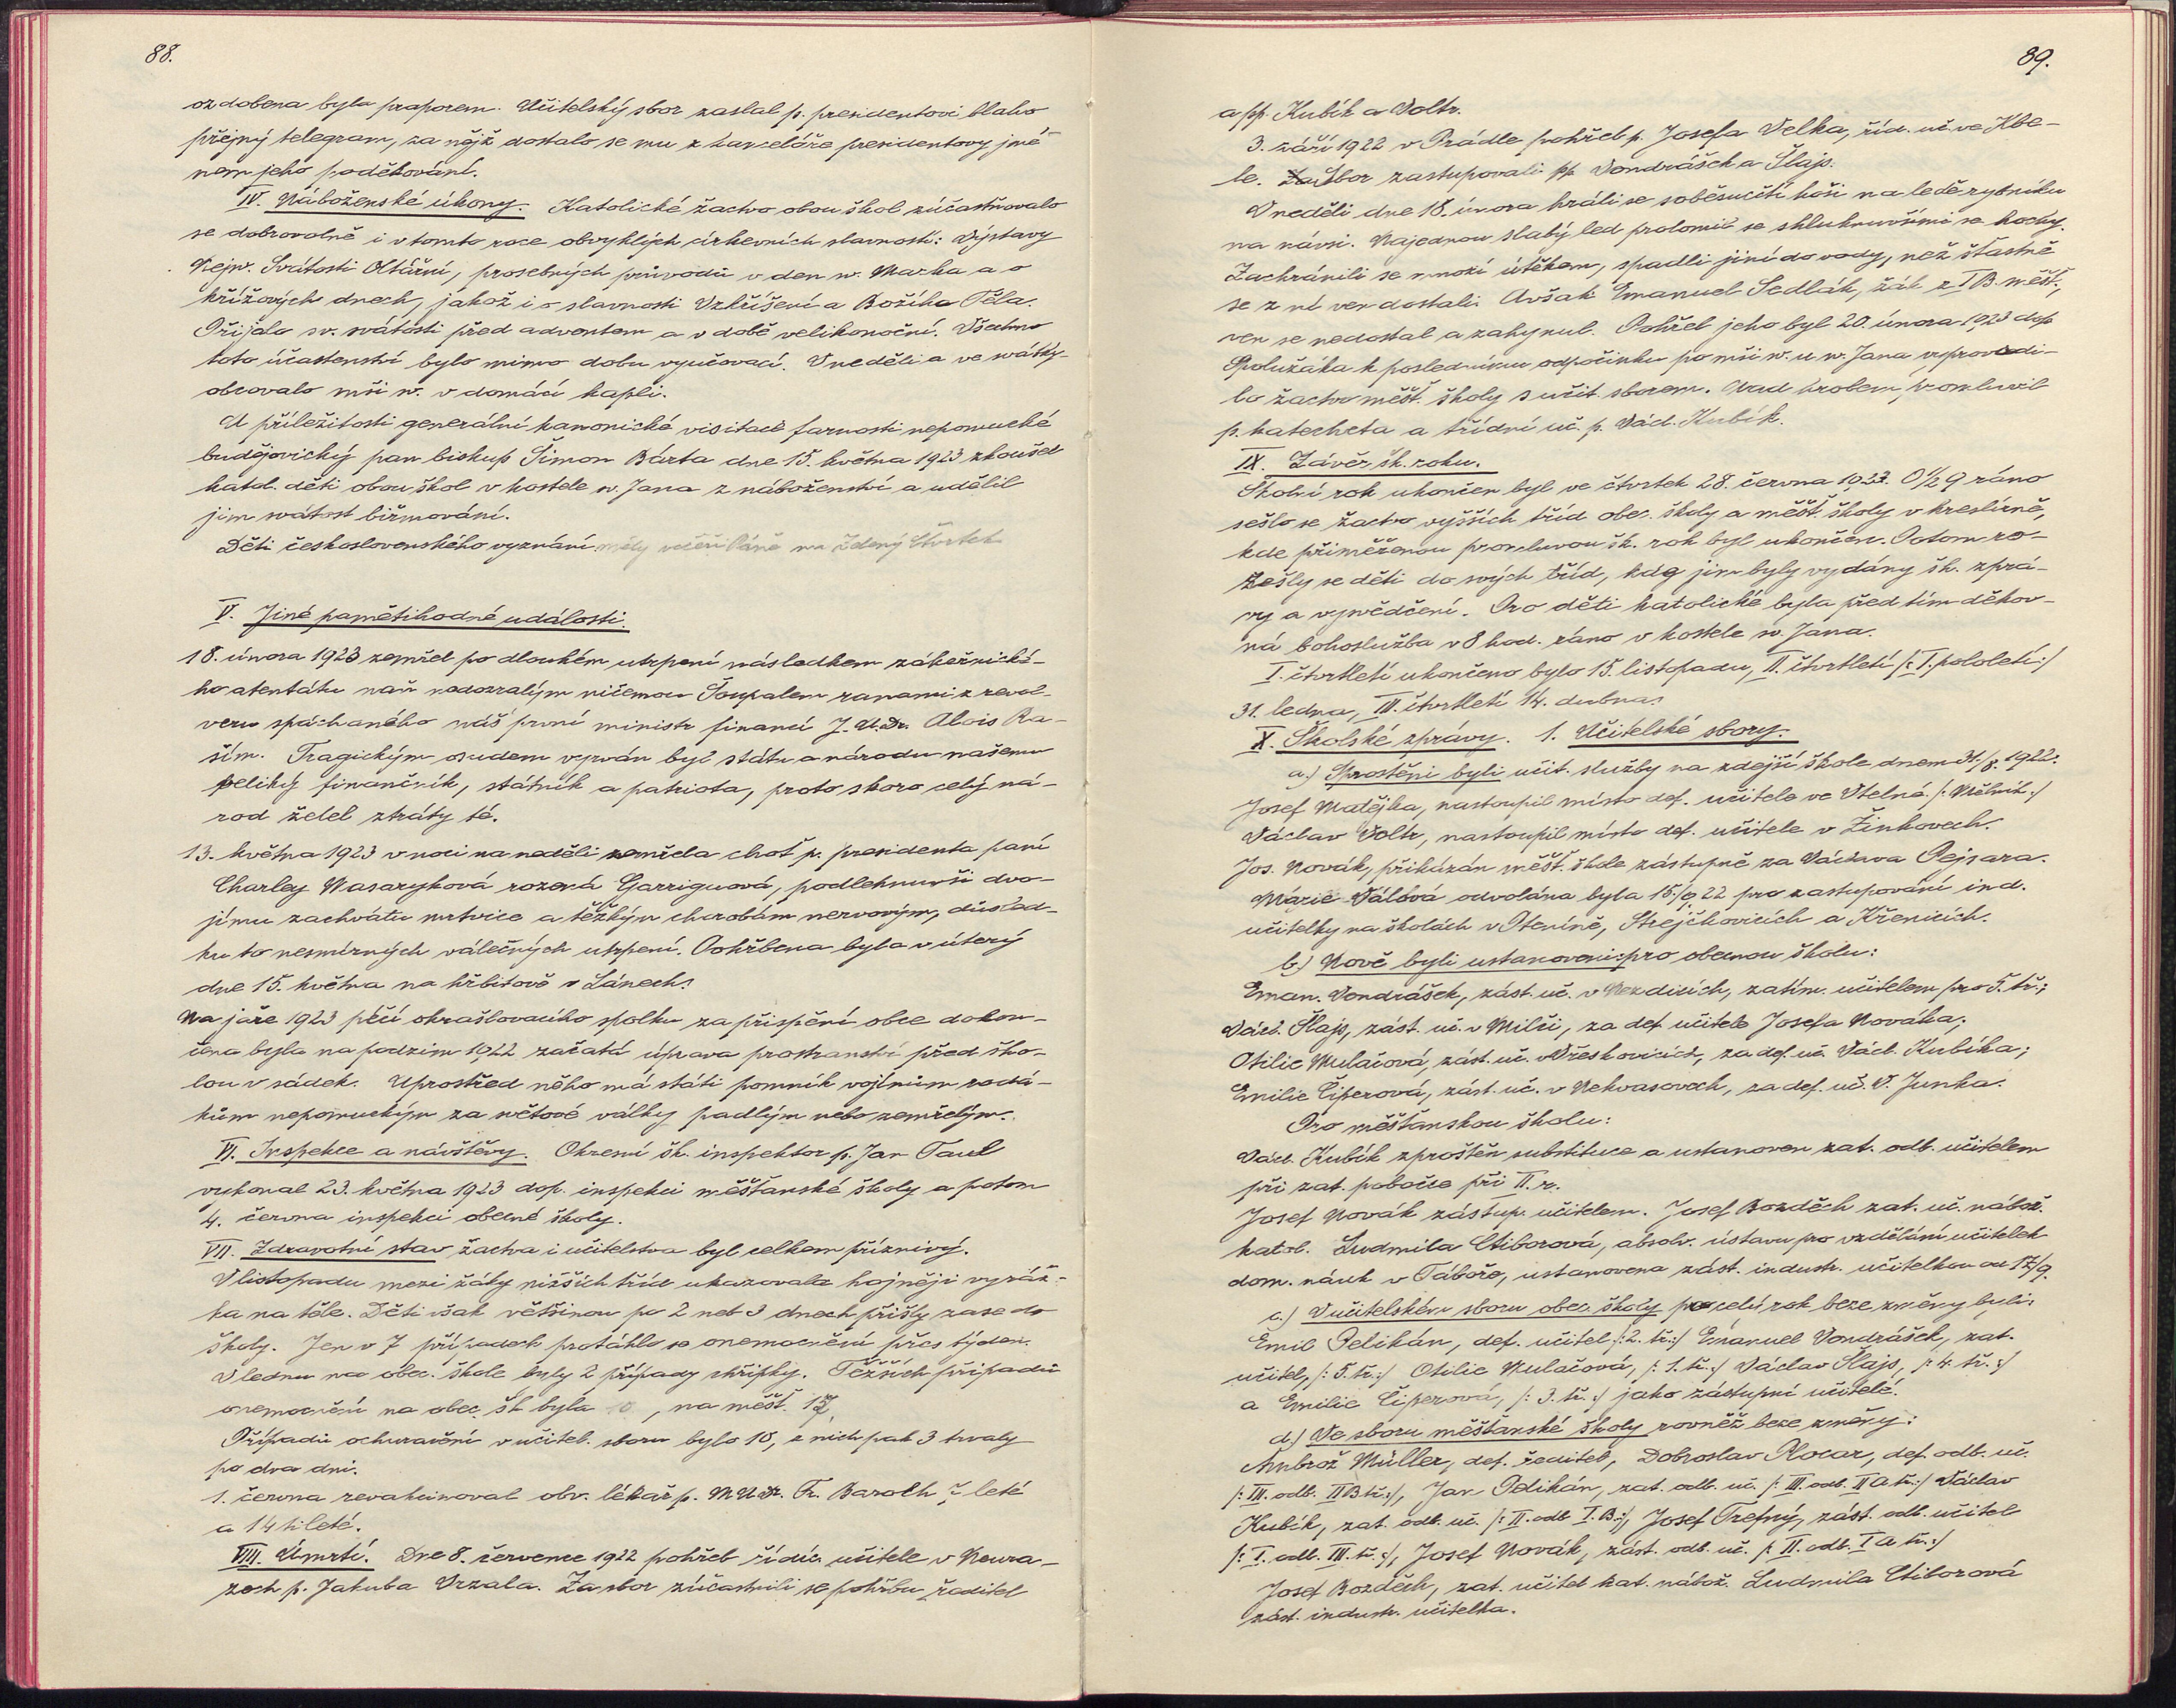 88.
ozdobena byla praporem. Učitelský sbor zaslal p. presidentovi blaho
přejný telegram, za nějž dostalo se mu z kanceláře presidentovy jmé-
nem jeho poděkování.
IV. Náboženské úkony. Katolické žactvo obou škol zúčastňovalo
se dobrovolně i v tomto roce obvyklých církevních slavností: Výstavy
Nejsv. Svátosti Oltářní, prosebných průvodů v den sv. Marka a o
křížových dnech, jakož i o slavnosti Vzkříšení a Božího Těla.
Přijalo sv. svátosti před adventem a v době velikonoční. Všechno
toto účastenství bylo mimo dobu vyučovací. V neděli a ve svátky
obcovalo mši sv. v domácí kapli.
U příležitosti generální kanonické visitace farnosti nepomucké
budějovický pan biskup Šimon Bárta dne 15. května 1923 zkoušel
katol. děti obou škol v kostele sv. Jana z náboženství a udělil
jim svátost biřmování.
Děti československého vyznání měly večeři Páně na Zelený Čtvrtek
V. Jiné pamětihodné události.
18. února 1923 zemřel po dlouhém utrpení následkem zákeřnické-
ho atentátu naň nedozralým ničemou Šoupalem ranami z revol-
veru spáchaného náš první ministr financí J.U.Dr. Alois Ra-
šín. Tragickým osudem vyrván byl státu a národu našemu
veliký finančník, státník a patriota, proto skoro celý ná-
rod želel ztráty té.
13. května 1923 v noci na neděli zemřela choť p. presidenta paní
Charley Masaryková rozená Garriguová, podlehnuvši dvo-
jímu zachvátu mrtvice a těžkým chorobám nervovým, důsled-
ku to nesmírných válečných utrpení. Pohřbena byla v úterý
dne 15. května na hřbitově v Lánech.
Na jaře 1923 péčí okrašlovacího spolku za přispění obce dokon-
čena byla na podzim 1922 začatá úprava prostranství před ško-
lou v sádek. Uprostřed něho má státi pomník vojínům rodá-
kům nepomuckým za světové války padlým nebo zemřelým.
VI. Inspekce a návštěvy. Okresní šk. inspektor p. Jan Taul
vykonal 23. května 1923 dop. inspekci měšťanské školy a potom
4. června inspekci obecné školy.
VII. Zdravotní stav žactva i učitelstva byl celkem příznivý.
V listopadu mezi žáky nižších tříd ukazovala hojněji vyráž-
ka na těle. Děti však většinou po 2 neb 3 dnech přišly zase do
školy. Jen v 7 případech protáhlo se onemocnění přes týden.
V lednu na obec. škole byly 2 případy chřipky. Těžších případů
onemocnění na obec. šk byla 10, na měšť. 17
Případů ochuravění v učitel. sboru bylo 10, z nich pak 3 trvaly
po dva dni.
1. června revakcinoval obv. lékař p. MUDr. Fr. Baroch 7 leté
a 14 tileté.
VIII. Úmrtí. Dne 8. července 1922 pohřeb řídíc. učitele v Neura-
zech p. Jakuba Vrzala. Za sbor zúčastnili se pohřbu ředitel
89.
a pp. Kubík a Voltr.
3. září 1922 v Prádle pohřeb p. Josefa Velka, říd. uč. ve Kbe-
le. Sbor zastupovali pp. Vondrášek a Šlajs.
V neděli dne 18. února hráli se soběsučtí hoši na ledě rybníku
na návsi. Najednou slabý led prolomil se shluknuvšími se hochy.
Zachránili se mnozí útěkem, spadli jiní do vody, než šťastně
se z ní ven dostali. Avšak Emanuel Sedlák, žák z I B. měšť.,
ven se nedostal a zahynul. Pohřeb jeho byl 20. února 1923 dop.
Spolužáka k poslednímu odpočinku po mši sv. u sv. Jana vyprovodi-
lo žactvo měšť. školy s učit. sborem. Nad hrobem promluvil
p. katecheta a třídní uč. p. Václ. Kubík.
IX. Závěr šk. roku.
Školní rok ukončen byl ve čtvrtek 28. června 1923. O ½ 9 ráno
sešlo se žactvo vyšších tříd obec. školy a měšť. školy v kreslírně,
kde přiměřenou promluvou šk. rok byl ukončen. Potom ro-
zešly se děti do svých tříd, kdg jim byly vydány šk. zprá-
vy a vysvědčení. Pro děti katolické byla před tím děkov-
ná bohoslužba v 8 hod. ráno v kostele sv. Jana.
I. čtvrtletí ukončeno bylo 15. listopadu, II. čtvrtletí /: I. pololetí :/
31. ledna, III. čtvrtletí 14. dubna.
X. Školské zprávy. 1. Učitelské sbory.
a.) Sproštěni byli učit. služby na zdejší škole dnem 31./8. 1922:
Josef Matějka, nastoupil místo def. učitele ve Vtelně /: Mělník :/
Václav Voltr, nastoupil místo def. učitele v Žinkovech.
Jos. Novák, přikázán měšť. škole zástupně za Václava Pejsara.
Marie Válová odvolána byla 15./9 22 pro zastupování ind.
učitelky na školách v Ptenině, Střejčkovicích a Křenicích.
b.) Nově byli ustanoveni: pro obecnou školu:
Eman. Vondrášek, zást. uč. v Nezdicích, zatím. učitelem pro 5. tř.;
Václ. Šlajs, zást. uč. v Milči, za def. učitele Josefa Nováka;
Otilie Mulačová, zást. uč. v Vřeskovicích, za def. uč. Václ. Kubíka;
Emilie Čiperová, zást. uč. v Nekvasovech, za def. uč. V. Junka.
Pro měšťanskou školu:
Václ. Kubík zproštěn substituce a ustanoven zat. odb. učitelem
při zat. pobočce při II. r.
Josef Novák zástup. učitelem. Josef Bozděch zat. uč. nábož.
katol. Ludmila Ctiborová, absolv. ústavu pro vzdělání učitelek
dom. nauk v Táboře, ustanovena zást. industr. učitelkou od 17/9.
c.) V učitelském sboru obec. školy po celý rok beze změny byli:
Emil Pelikán, def. učitel /: 2. tř. :/ Emanuel Vondrášek, zat.
učitel, /: 5. tř. :/ Otilie Mulačová, /: 1. tř. :/ Václav Šlajs, /: 4. tř. :/
a Emilie Čiperová, /: 3. tř. :/ jako zástupní učitelé.
d.) Ve sboru měšťanské školy rovněž beze změny:
Ambrož Müller, def. ředitel, Dobroslav Plocar, def. odb. uč.
/: III. odb. II B tř. :/, Jan Pelikán, zat. odb. uč. /: III. odb. II A tř. :/ Václav
Kubík, zat. odb. uč. /: II. odb. I. B. :/, Josef Trefný, zást. odb. učitel
/: I. odb. III. tř. :/, Josef Novák, zást. odb. uč. /: II. odb. I A tř. :/
Josef Bozděch, zat. učitel kat. nábož. Ludmila Ctiborová
zást. industr. učitelka.